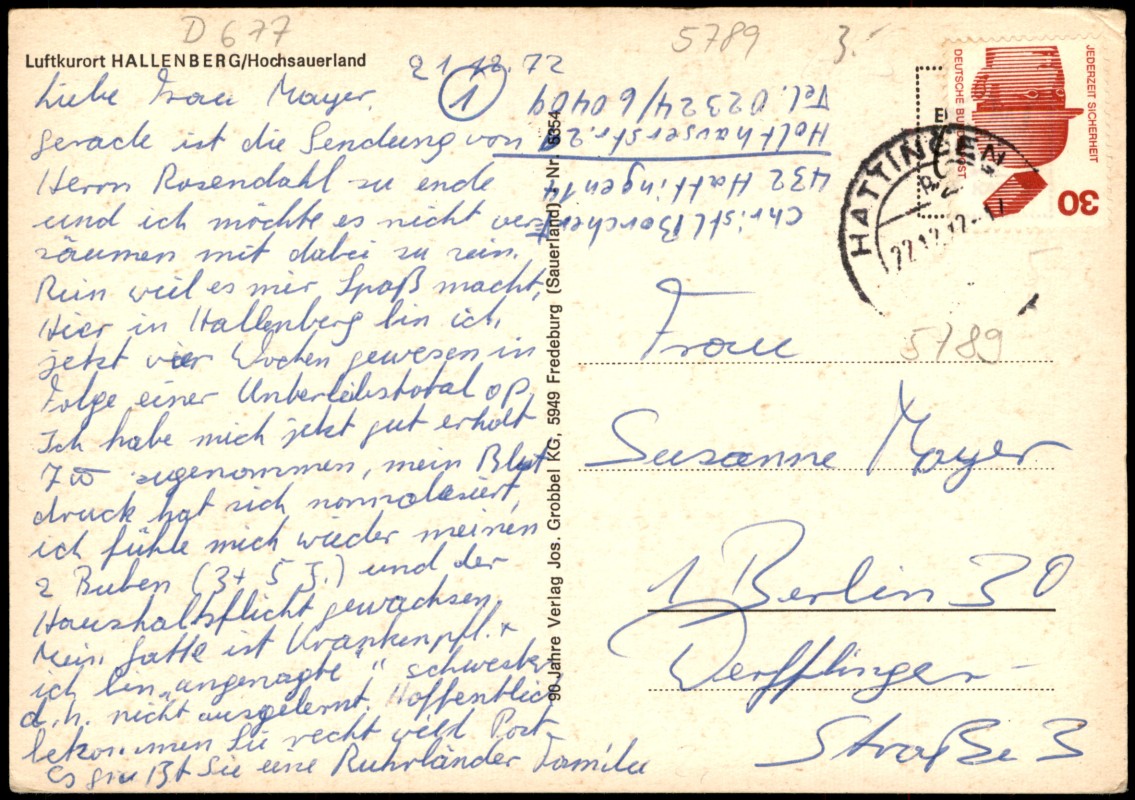 D 677
5789
3.-
Luftkurort HALLENBERG/Hochsauerland
21.12.72
①
Liebe Frau Mayer,
gerade ist die Sendung von
Herrn Rosendahl zu ende
und ich möchte es nicht ver-
säumen mit dabei zu sein.
Rein weil es mir Spaß macht,
Hier in Hallenberg bin ich
jetzt vier Wochen gewesen in
Folge einer Unterleibstotal op.
Ich habe mich jetzt gut erholt
7 zugenommen, mein Blut
druck hat sich normalisiert,
ich fühle mich wieder meinen
2 Buben (3+ 5 J.) und der
Haushaltspflicht gewachsen.
Mein Gatte ist Krankenpfl. +
ich bin „angenagte" schwester
d.h. nicht ausgelernt. Hoffentlich
bekommen Sie recht viel Post.
Es grüßt Sie eine Ruhrländer Familie
Christl Borchert
432 Hattingen 14
Holthauserstr. 2
Tel. 02324/60409
90 Jahre Verlag Jos. Grobbel KG, 5949 Fredeburg (Sauerland) - Nr. 6354
JEDERZEIT SICHERHEIT
DEUTSCHE BUNDESPOST
30
HATTINGEN
22.12.72-17
5789
Frau
Susanne Mayer
1 Berlin 30
Derfflinger-
Straße 3